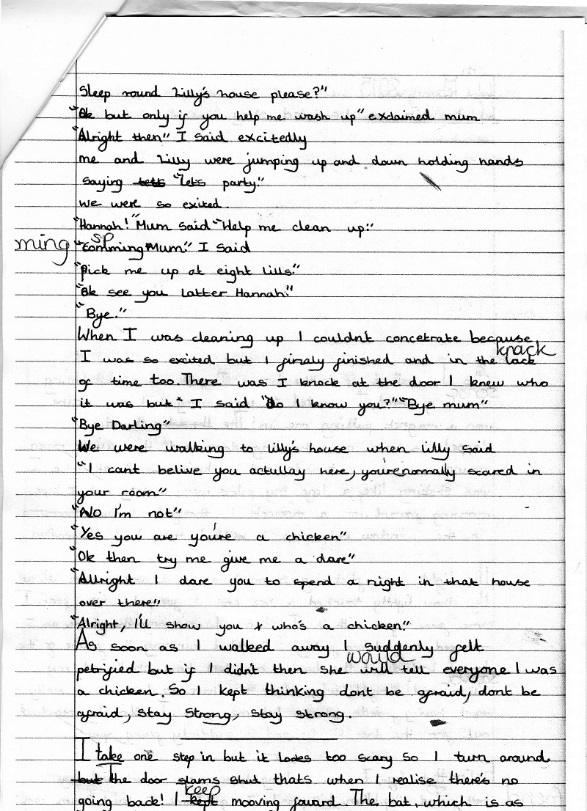 Sleep round Lilly's house please?"
"Ok but only if you help me wash up" exclaimed mum
"Alright then" I said excitedly
me and Lilly were jumping up and down holding hands
saying "lets party."
We were so exited.
"Hannah!" Mum said "Help me clean up."
ming sp "comming Mum." I said
"pick me up at eight Lills."
"Ok see you latter Hannah."
"Bye."
When I was cleaning up I couldn't concetrate because
knack
I was so excited but I finaly finished and in the lack
of time too. There was I knock at the door I knew who
it was but I said "do I know you?" "Bye mum"
"Bye Darling"
We were walking to Lilly's house when Lilly said
"I cant belive you actullay here, you're normally scared in
your room"
"No I'm not"
"Yes you are you're a chicken"
"Ok then try me give me a dare"
"Allright I dare you to spend a night in that house
over there"
"Alright, I'll show you who's a chicken."
As soon as I walked away I suddenly felt
would
petrified but if I didn't then she will tell everyone I was
a chicken. So I kept thinking dont be afraid, dont be
afraid, stay strong, stay strong.
I take one step in but it lookes too scary so I turn around
but the door slams shut thats when I realise there's no
keep
going back! I kept mooving foward The bat, which is as